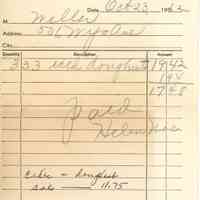 Date Oct 23, 19
M Miller
Address 501 Wyo Ave
City
Quantity Description Amount
333 iced doughnuts 1942
194
1748
Paid
Helen
Cider - Donghut
Sale — 11.75